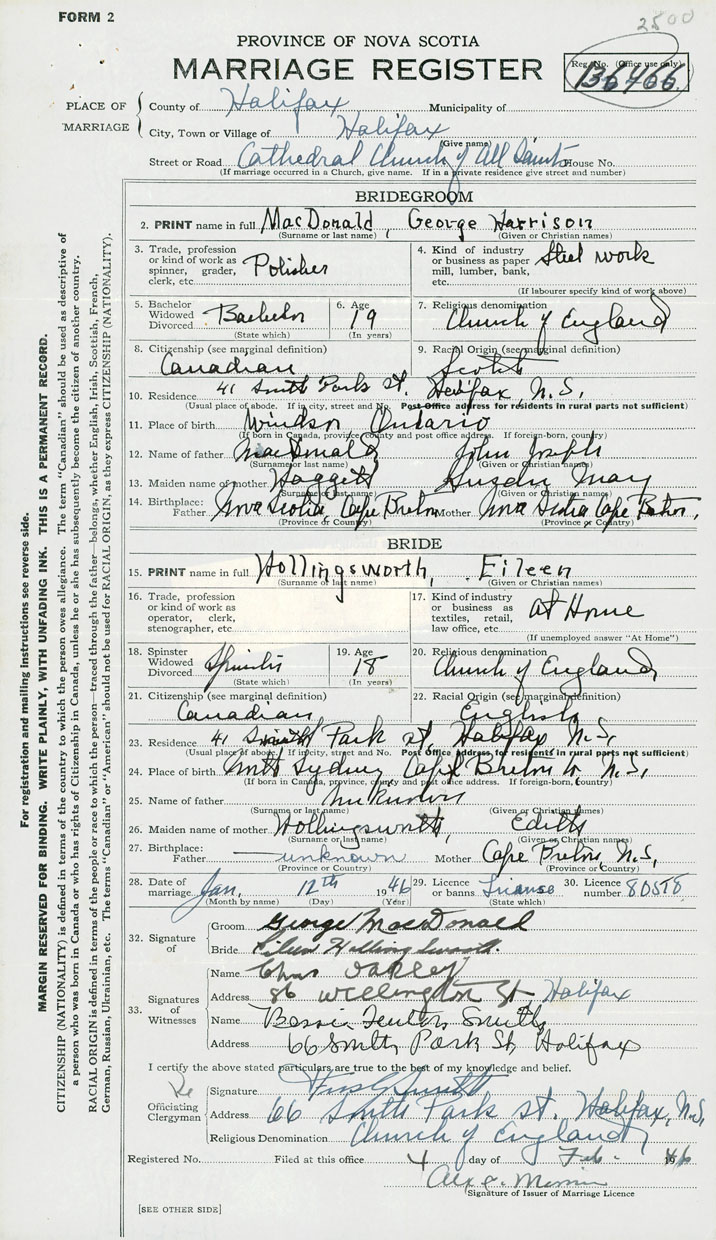 FORM 2
2500
PROVINCE OF NOVA SCOTIA
MARRIAGE REGISTER
Reg. No. (Office use only)
136466
PLACE OF MARRIAGE
County of Halifax Municipality of
City, Town or Village of Halifax
(Give name)
Street or Road Cathedral Church of All Saints House No.
(If marriage occurred in a Church, give name. If in a private residence give street and number)
BRIDEGROOM
2. PRINT name in full MacDonald, George Harrison
(Surname or last name) (Given or Christian names)
3. Trade, profession or kind of work as spinner, grader, clerk, etc. Polisher
4. Kind of industry or business as paper mill, lumber, bank, etc. Steel work
(If labourer specify kind of work above)
5. Bachelor Widowed Divorced Bachelor
(State which)
6. Age 19
(In years)
7. Religious denomination
Church of England
8. Citizenship (see marginal definition)
Canadian
9. Racial Origin (see marginal definition)
Scotch
10. Residence 41 South Park St. Halifax, N.S.
(Usual place of abode. If in city, street and No. Post Office address for residents in rural parts not sufficient)
11. Place of birth Windsor Ontario
(If born in Canada, province, county and post office address. If foreign-born, country)
12. Name of father MacDonald John Joseph
(Surname or last name) (Given or Christian names)
13. Maiden name of mother Haggett May
(Surname or last name) (Given or Christian names)
14. Birthplace: Father Nova Scotia, Cape Breton Mother Nova Scotia Cape Breton,
(Province or Country) (Province or Country)
BRIDE
15. PRINT name in full Hollingsworth, Eileen
(Surname or last name) (Given or Christian names)
16. Trade, profession or kind of work as operator, clerk, stenographer, etc.
17. Kind of industry or business as textiles, retail, law office, etc. at Home
(If unemployed answer "At Home")
18. Spinster Widowed Divorced Spinster
(State which)
19. Age 18
(In years)
20. Religious denomination
Church of England
21. Citizenship (see marginal definition)
Canadian
22. Racial Origin (see marginal definition)
English
23. Residence 41 South Park St Halifax N.S.
(Usual place of abode. If in city, street and No. Post Office address for residents in rural parts not sufficient)
24. Place of birth North Sydney Cape Breton N.S.
(If born in Canada, province, county and post office address. If foreign-born, country)
25. Name of father Unknown
(Surname or last name) (Given or Christian names)
26. Maiden name of mother Hollingsworth, Edith
(Surname or last name) (Given or Christian names)
27. Birthplace: Father unknown Mother Cape Breton, N.S,
(Province or Country) (Province or Country)
28. Date of marriage Jan. 12th 1946
(Month by name) (Day) (Year)
29. Licence or banns License
(State which)
30. Licence number 80518
32. Signature of
Groom George Macdonald
Bride Eileen Hollingsworth.
33. Signatures of Witnesses
Name Chas Oakley
Address 86 Wellington St, Halifax
Name Bessie Fenton Smith
Address 66 South Park St, Halifax
I certify the above stated particulars are true to the best of my knowledge and belief.
Officiating Clergyman
Signature Smith
Address 66 South Park St. Halifax, N.S.
Religious Denomination Church of England
Registered No. Filed at this office 4 day of Feb. 1946
Signature of Issuer of Marriage Licence
[SEE OTHER SIDE]
For registration and mailing instructions see reverse side.
MARGIN RESERVED FOR BINDING. WRITE PLAINLY, WITH UNFADING INK. THIS IS A PERMANENT RECORD.
CITIZENSHIP (NATIONALITY) is defined in terms of the country to which the person owes allegiance. The term "Canadian" should be used as descriptive of
a person who was born in Canada or who has rights of Citizenship in Canada, unless he or she has subsequently become the citizen of another country.
RACIAL ORIGIN is defined in terms of the people or race to which the person—traced through the father—belongs, whether English, Irish, Scottish, French,
German, Russian, Ukrainian, etc. The terms "Canadian" or "American" should not be used for RACIAL ORIGIN, as they express CITIZENSHIP (NATIONALITY).